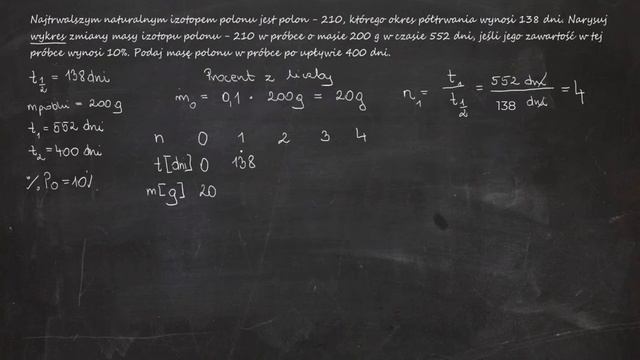 Najtrwalszym naturalnym izotopem polonu jest polon - 210, którego okres półtrwania wynosi 138 dni. Narysuj
wykres zmiany masy izotopu polonu - 210 w próbce o masie 200 g w czasie 552 dni, jeśli jego zawartość w tej
próbce wynosi 10%. Podaj masę polonu w próbce po upływie 400 dni.
t½ = 138 dni
m próbki = 200 g
t₁ = 552 dni
t₂ = 400 dni
% Po = 10%
Procent z liczby
m₀ = 0,1 · 200g = 20g
n₁ = t₁ / t½ = 552 dni / 138 dni = 4
n 0 1 2 3 4
t [dni] 0 138
m [g] 20